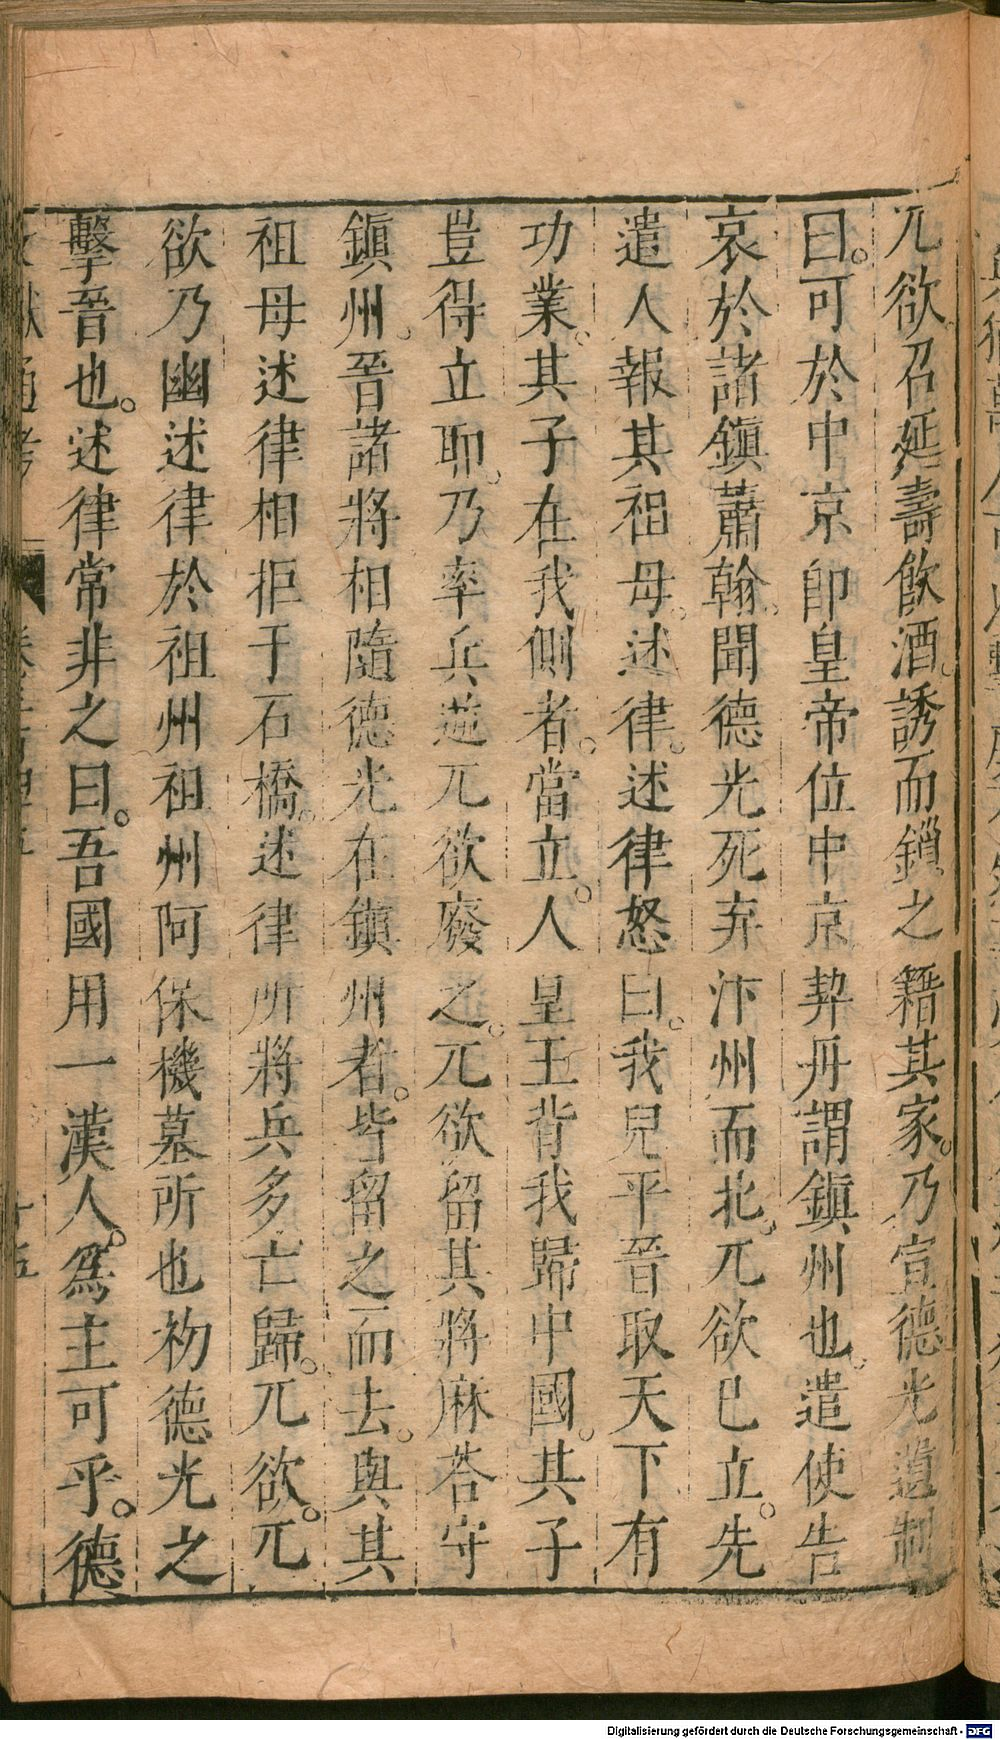 兀欲召延壽飲酒。誘而鎖之籍其家。乃宣德光遺制
曰。可於中京卽皇帝位中京契丹謂鎮州也。遣使告
哀於諸鎮蕭翰。聞德光死弃汴州而北。兀欲已立。先
遣人報其祖母。述律。述律怒曰。我兒平晉取天下有
功業。其子在我側者。當立。人皇王背我歸中國。其子
豈得立耶。乃率兵逆兀欲廢之。兀欲留其將麻荅守
鎮州。晉諸將相隨德光在鎮州者。皆留之而去。與其
祖母述律相拒于石橋。述律所將兵多亡歸。兀欲。兀
欲乃幽述律於祖州祖州阿保機墓所也初德光之
擊晉也。述律常非之曰。吾國用一漢人。爲主可乎。德
通考
十五
Digitalisierung gefördert durch die Deutsche Forschungsgemeinschaft - DFG